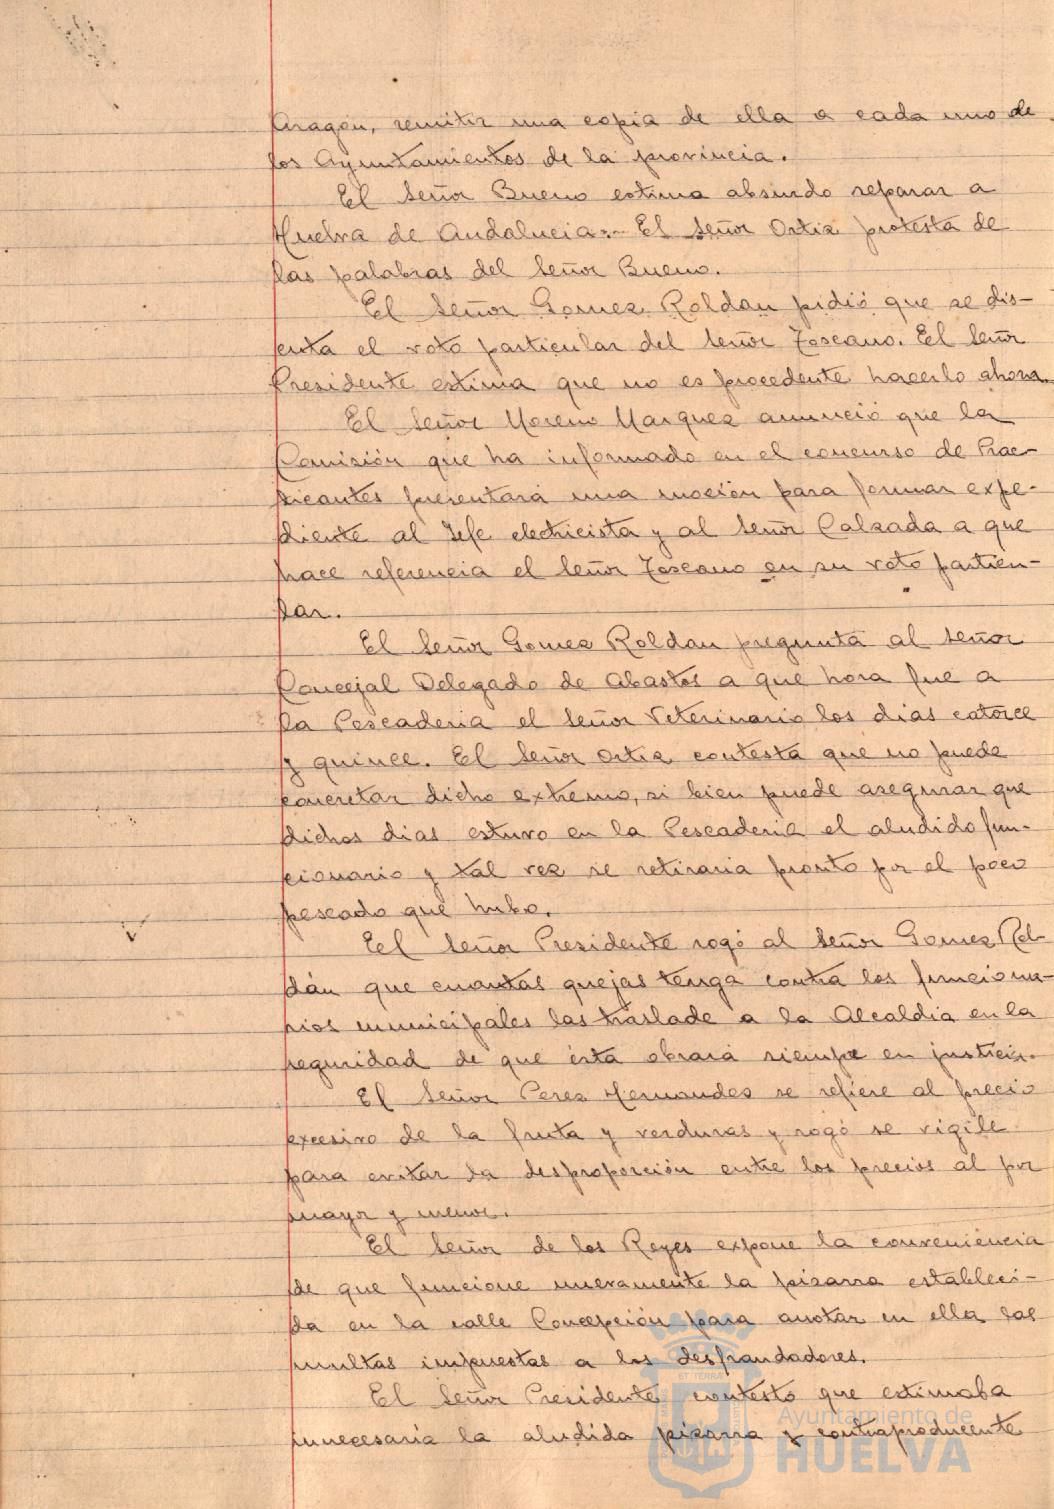 Aragón, remitir una copia de ella a cada uno de
los Ayuntamientos de la provincia.
El Señor Bueno estima absurdo separar a
Huelva de Andalucia.- El Señor Ortiz protesta de
las palabras del Señor Bueno.
El Señor Gomez Roldan pidió que se dis-
cuta el voto particular del Señor Toscano. El Señor
Presidente estima que no es procedente hacerlo ahora.
El Señor Moreno Marquez anunció que la
Comisión que ha informado en el concurso de Prac-
ticantes presentará una moción para formar expe-
diente al Jefe electricista y al Señor Calzada a que
hace referencia el Señor Toscano en su voto particu-
lar.
El Señor Gomez Roldan pregunta al Señor
Concejal Delegado de Abastos a que hora fue a
la Pescaderia el Señor Veterinario los dias catorce
y quince. El Señor Ortiz contesta que no puede
concretar dicho extremo, si bien puede asegurar que
dichos dias estuvo en la Pescaderia el aludido fun-
cionario y tal vez se retiraria pronto por el poco
pescado que hubo.
Eel Señor Presidente rogó al Señor Gomez Rol-
dán que cuantas quejas tenga contra los funciona-
rios municipales las traslade a la Alcaldia en la
seguridad de que ésta obrará siempre en justicia.
El Señor Perez Hernandez se refiere al precio
excesivo de la fruta y verduras y rogó se vigile
para evitar la desproporción entre los precios al por
mayor y menor.
El Señor de los Reyes expone la conveniencia
de que funcione nuevamente la pizarra estableci-
da en la calle Concepción para anotar en ella las
multas impuestas a los desfraudadores.
El Señor Presidente contestó que estimaba
innecesaria la aludida pizarra y contraproducente
Ayuntamiento de
HUELVA